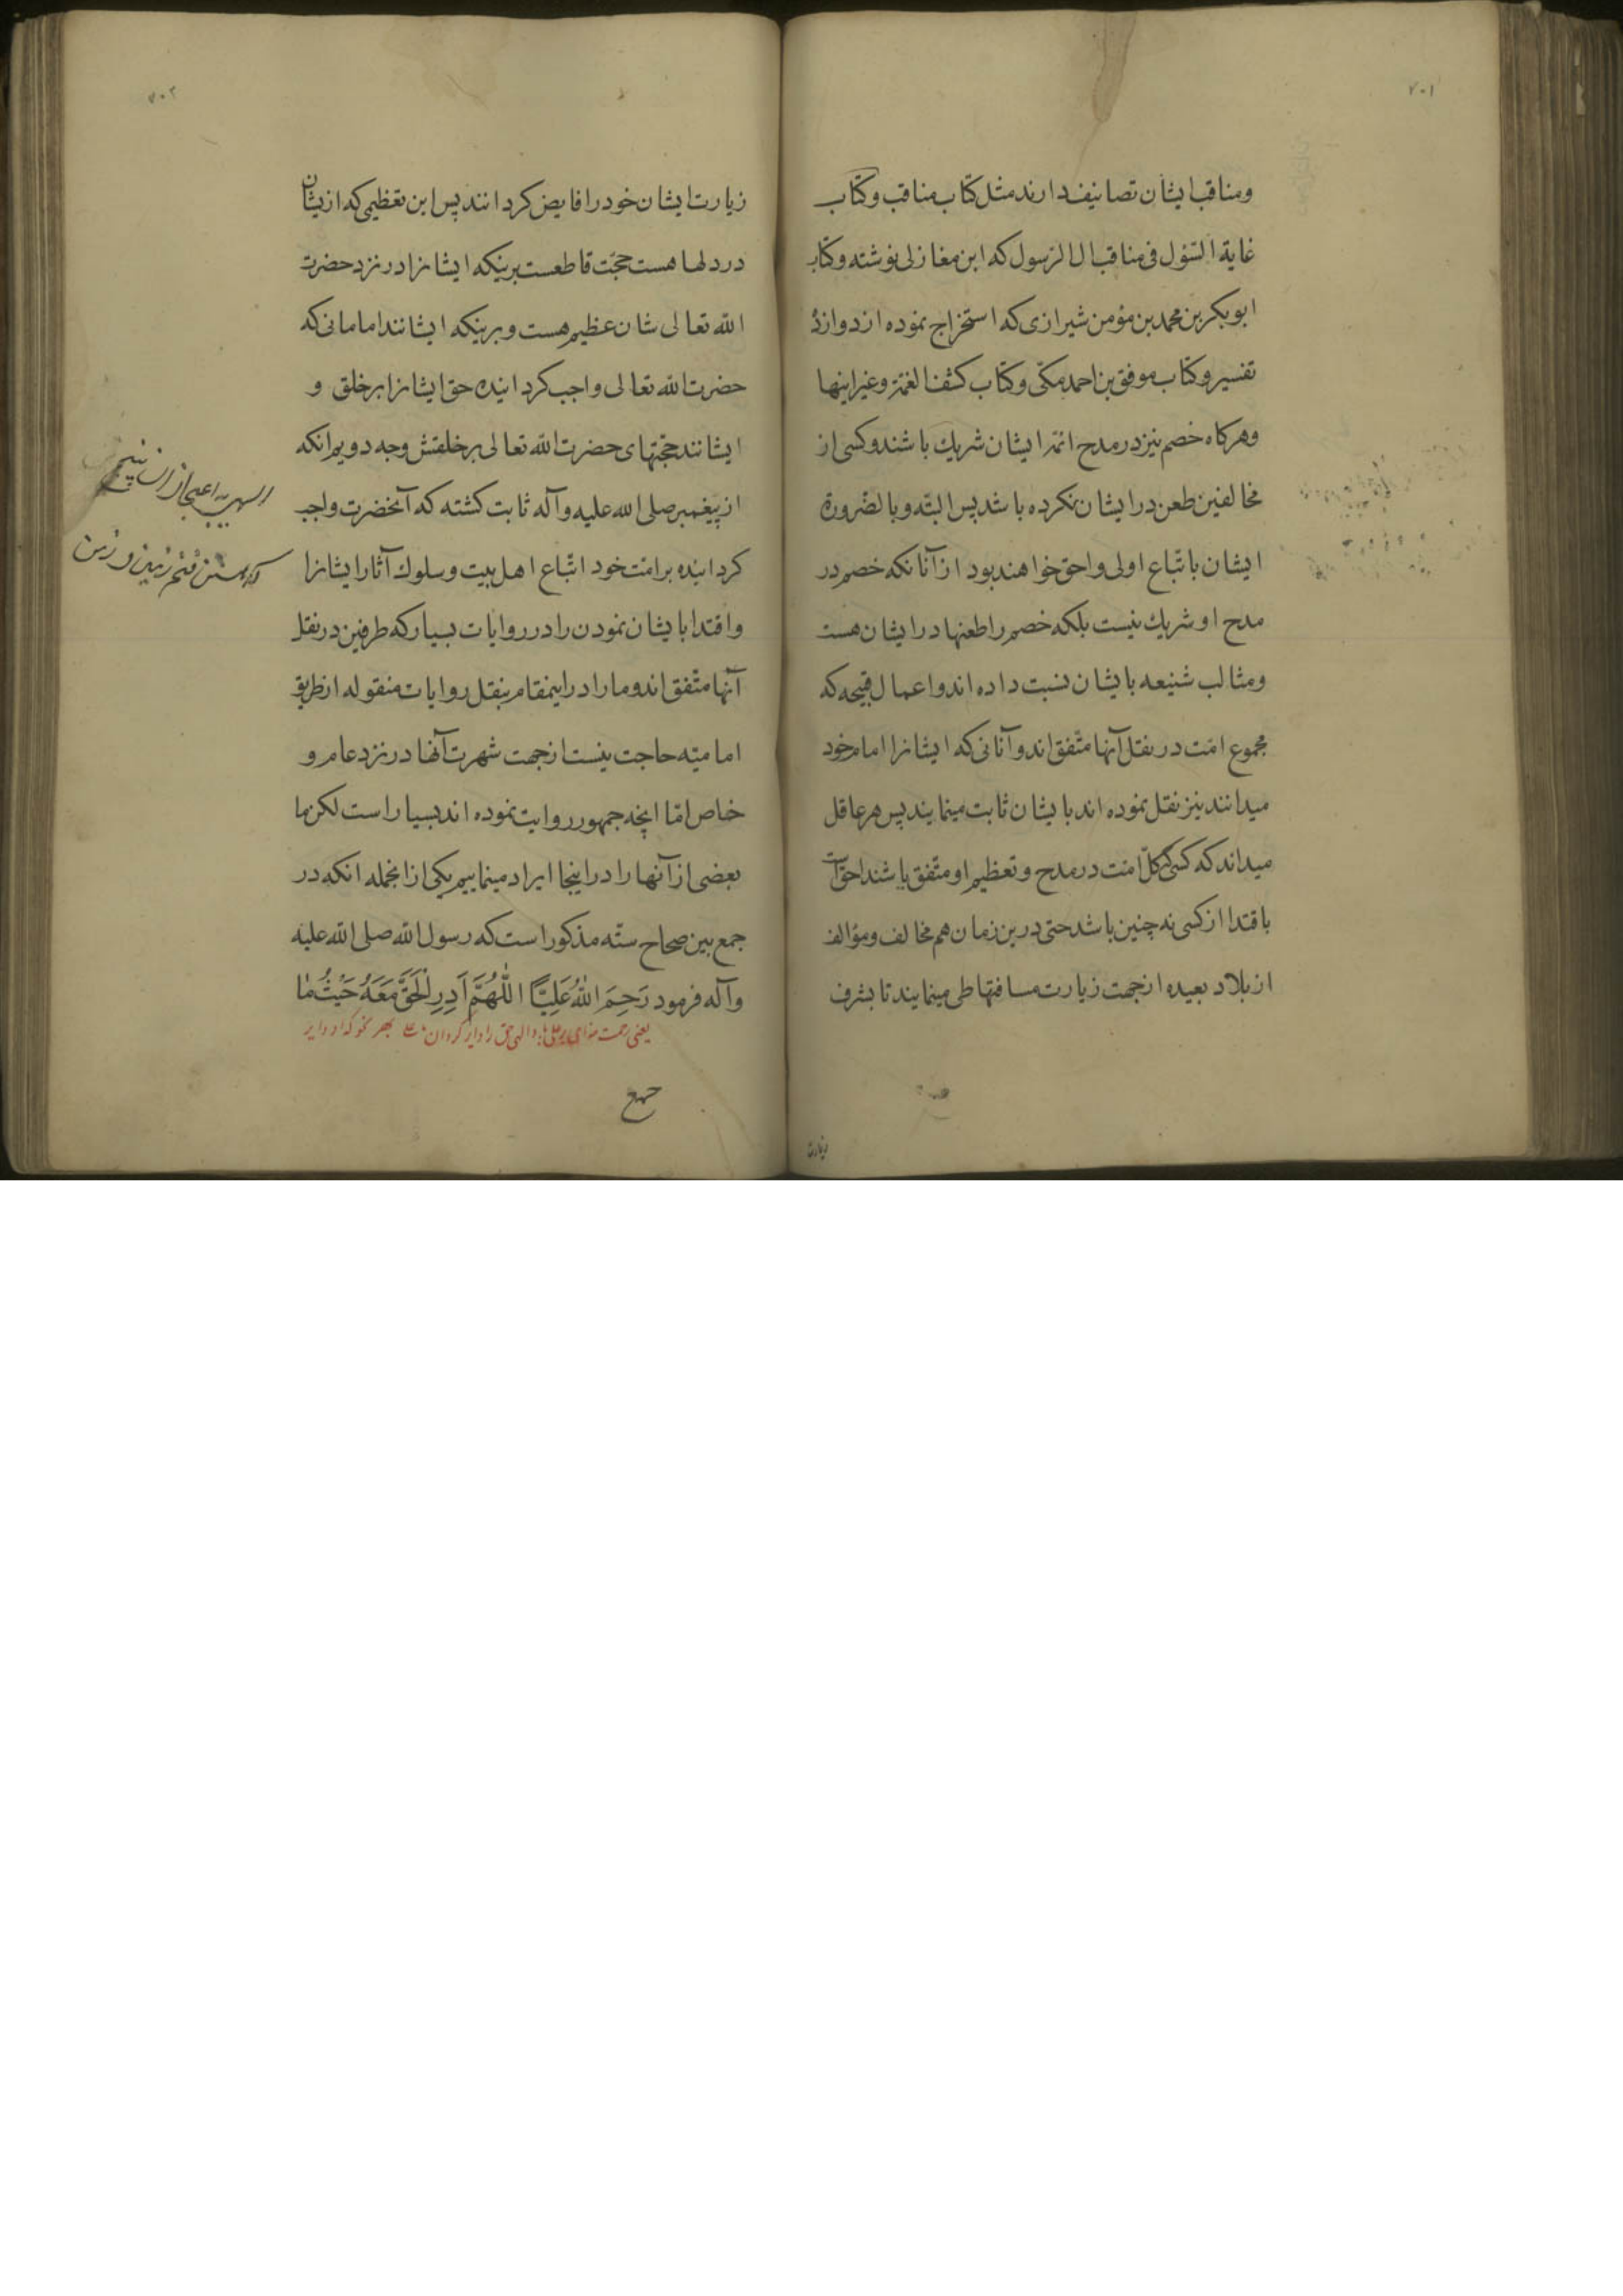 ۷۰۱
ومناقب ایشان تصانیف دارند مثل کتاب مناقب وکتاب
غایة السّؤل فی مناقب ال الرّسول که ابن مغازلی نوشته وکتاب
ابوبکر بن محمد بن مؤمن شیرازی که استخراج نموده از دوازده
تفسیر وکتاب موفق بن احمد مکّی وکتاب کشف الغمّة وغیر اینها
وهرکاه خصم نیز در مدح ائمّه ایشان شریك باشند وکسی از
مخالفین طعن در ایشان نکرده باشد پس البتّه وبالضّرورة
ایشان باتّباع اولی واحق خواهند بود از آنانکه خصم در
مدح او شریك نیست بلکه خصم را طعنها در ایشان هست
ومثالب شنیعه بایشان نسبت داده اند واعمال قبیحه که
مجموع امّت در نقل آنها متّفق اند وآنانی که ایشانرا امام خود
میدانند نیز نقل نموده اند بایشان ثابت مینمایند پس هر عاقل
میداند که کسی که کلّ امّت در مدح وتعظیم او متّفق باشند احقّ است
باقتدا از کسی نه چنین باشد حتی درین زمان هم مخالف ومؤالف
از بلاد بعیده از جهت زیارت مسافتها طی مینمایند تا بشرف
زیارت
۷۰۲
زیارت ایشان خود را فایض کردانند پس این تعظیمی که از ایشان
در دلها هست حجّت قاطعست برینکه ایشانرا در نزد حضرت
الله تعالی شان عظیم هست وبرینکه ایشانند امامانی که
حضرت الله تعالی واجب کردانیده حق ایشانرا بر خلق و
ایشانند حجّتهای حضرت الله تعالی بر خلقش وجه دویم انکه
از پیغمبر صلی الله علیه وآله ثابت کشته که آنحضرت واجب
کردانیده بر امّت خود اتّباع اهل بیت وسلوك آثار ایشانرا
واقتدا بایشان نمودن را در روایات بسیار که طرفین در نقل
آنها متّفق اند وما را در اینمقام بنقل روایات منقوله از طریق
امامیّه حاجت نیست از جهت شهرت آنها در نزد عام و
خاص امّا انچه جمهور روایت نموده اند بسیار است لکن ما
بعضی از آنها را در اینجا ایراد مینماییم یکی از انجمله انکه در
جمع بین صحاح ستّه مذکور است که رسول الله صلی الله علیه
وآله فرمود رَحِمَ اللهُ عَلِیّاً اللّهُمَّ اَدِرِ الْحَقَّ مَعَهُ حَیْثُ مٰا
یعنی رحمت خدای بر علی باد الهی حق را دایر کردان
جمع